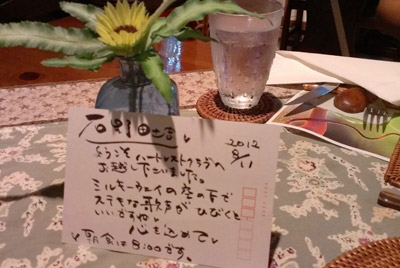 2012
8/11
ようこそハートレストクラブへ
お越し下さいました。
ミルキーウェイの空の下で
ステキな歌声がひびくと
いいですね
心を込めて
朝食は8:00です。